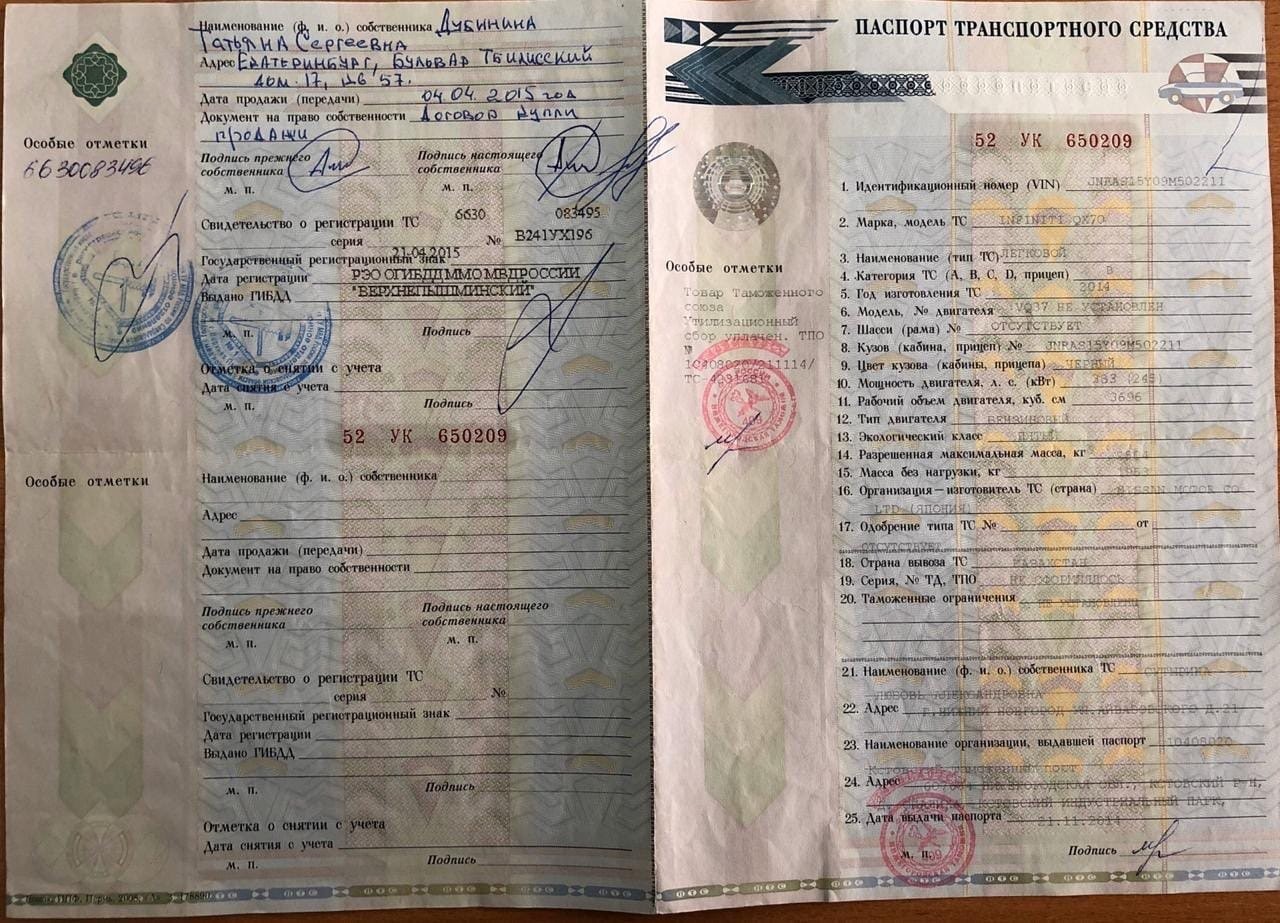 Наименование (ф. и. о.) собственника Дубинина
Татьяна Сергеевна
Адрес Екатеринбург, Бульвар Тбилисский
дом. 17, кв 57.
Дата продажи (передачи) 04.04.2015 год
Документ на право собственности Договор купли
продажи
Особые отметки
6630083496
Подпись прежнего собственника
Подпись настоящего собственника
м. п.
м. п.
Свидетельство о регистрации ТС
6630 083495
серия №
В241УХ196
Государственный регистрационный знак
21.04.2015
Дата регистрации
РЭО ОГИБДД ММО МВД РОССИИ
Выдано ГИБДД
"ВЕРХНЕПЫШМИНСКИЙ"
м. п. Подпись
Отметка о снятии с учета
Дата снятия с учета
м. п. Подпись
52 УК 650209
Особые отметки
Наименование (ф. и. о.) собственника
Адрес
Дата продажи (передачи)
Документ на право собственности
Подпись прежнего собственника
Подпись настоящего собственника
м. п.
м. п.
Свидетельство о регистрации ТС
серия №
Государственный регистрационный знак
Дата регистрации
Выдано ГИБДД
м. п. Подпись
Отметка о снятии с учета
Дата снятия с учета
м. п. Подпись
ПАСПОРТ ТРАНСПОРТНОГО СРЕДСТВА
52 УК 650209
1. Идентификационный номер (VIN) JNRAS15Y09M502211
2. Марка, модель ТС INFINITI QX70
3. Наименование (тип ТС) ЛЕГКОВОЙ
4. Категория ТС (А, В, С, D, прицеп) В
5. Год изготовления ТС 2014
6. Модель, № двигателя VQ37 НЕ УСТАНОВЛЕН
7. Шасси (рама) № ОТСУТСТВУЕТ
8. Кузов (кабина, прицеп) № JNRAS15Y09M502211
9. Цвет кузова (кабины, прицепа) ЧЕРНЫЙ
10. Мощность двигателя, л. с. (кВт) 333 (245)
11. Рабочий объем двигателя, куб. см 3696
12. Тип двигателя БЕНЗИНОВЫЙ
13. Экологический класс ПЯТЫЙ
14. Разрешенная максимальная масса, кг
15. Масса без нагрузки, кг
16. Организация—изготовитель ТС (страна) NISSAN MOTOR CO
LTD (ЯПОНИЯ)
17. Одобрение типа ТС № от
ОТСУТСТВУЕТ
18. Страна вывоза ТС КАЗАХСТАН
19. Серия, № ТД, ТПО НЕ ОФОРМЛЯЛОСЬ
20. Таможенные ограничения НЕ УСТАНОВЛЕНЫ
21. Наименование (ф. и. о.) собственника ТС
ЛЮБОВЬ АЛЕКСАНДРОВНА
22. Адрес Г. НИЖНИЙ НОВГОРОД
23. Наименование организации, выдавшей паспорт 10408020
Кстовский таможенный пост
24. Адрес НИЖЕГОРОДСКАЯ ОБЛ., КСТОВСКИЙ Р-Н,
КСТОВСКИЙ ИНДУСТРИАЛЬНЫЙ ПАРК,
25. Дата выдачи паспорта 21.11.2014
м. п. Подпись
Особые отметки
Товар Таможенного
союза
Утилизационный
сбор уплачен. ТПО
№